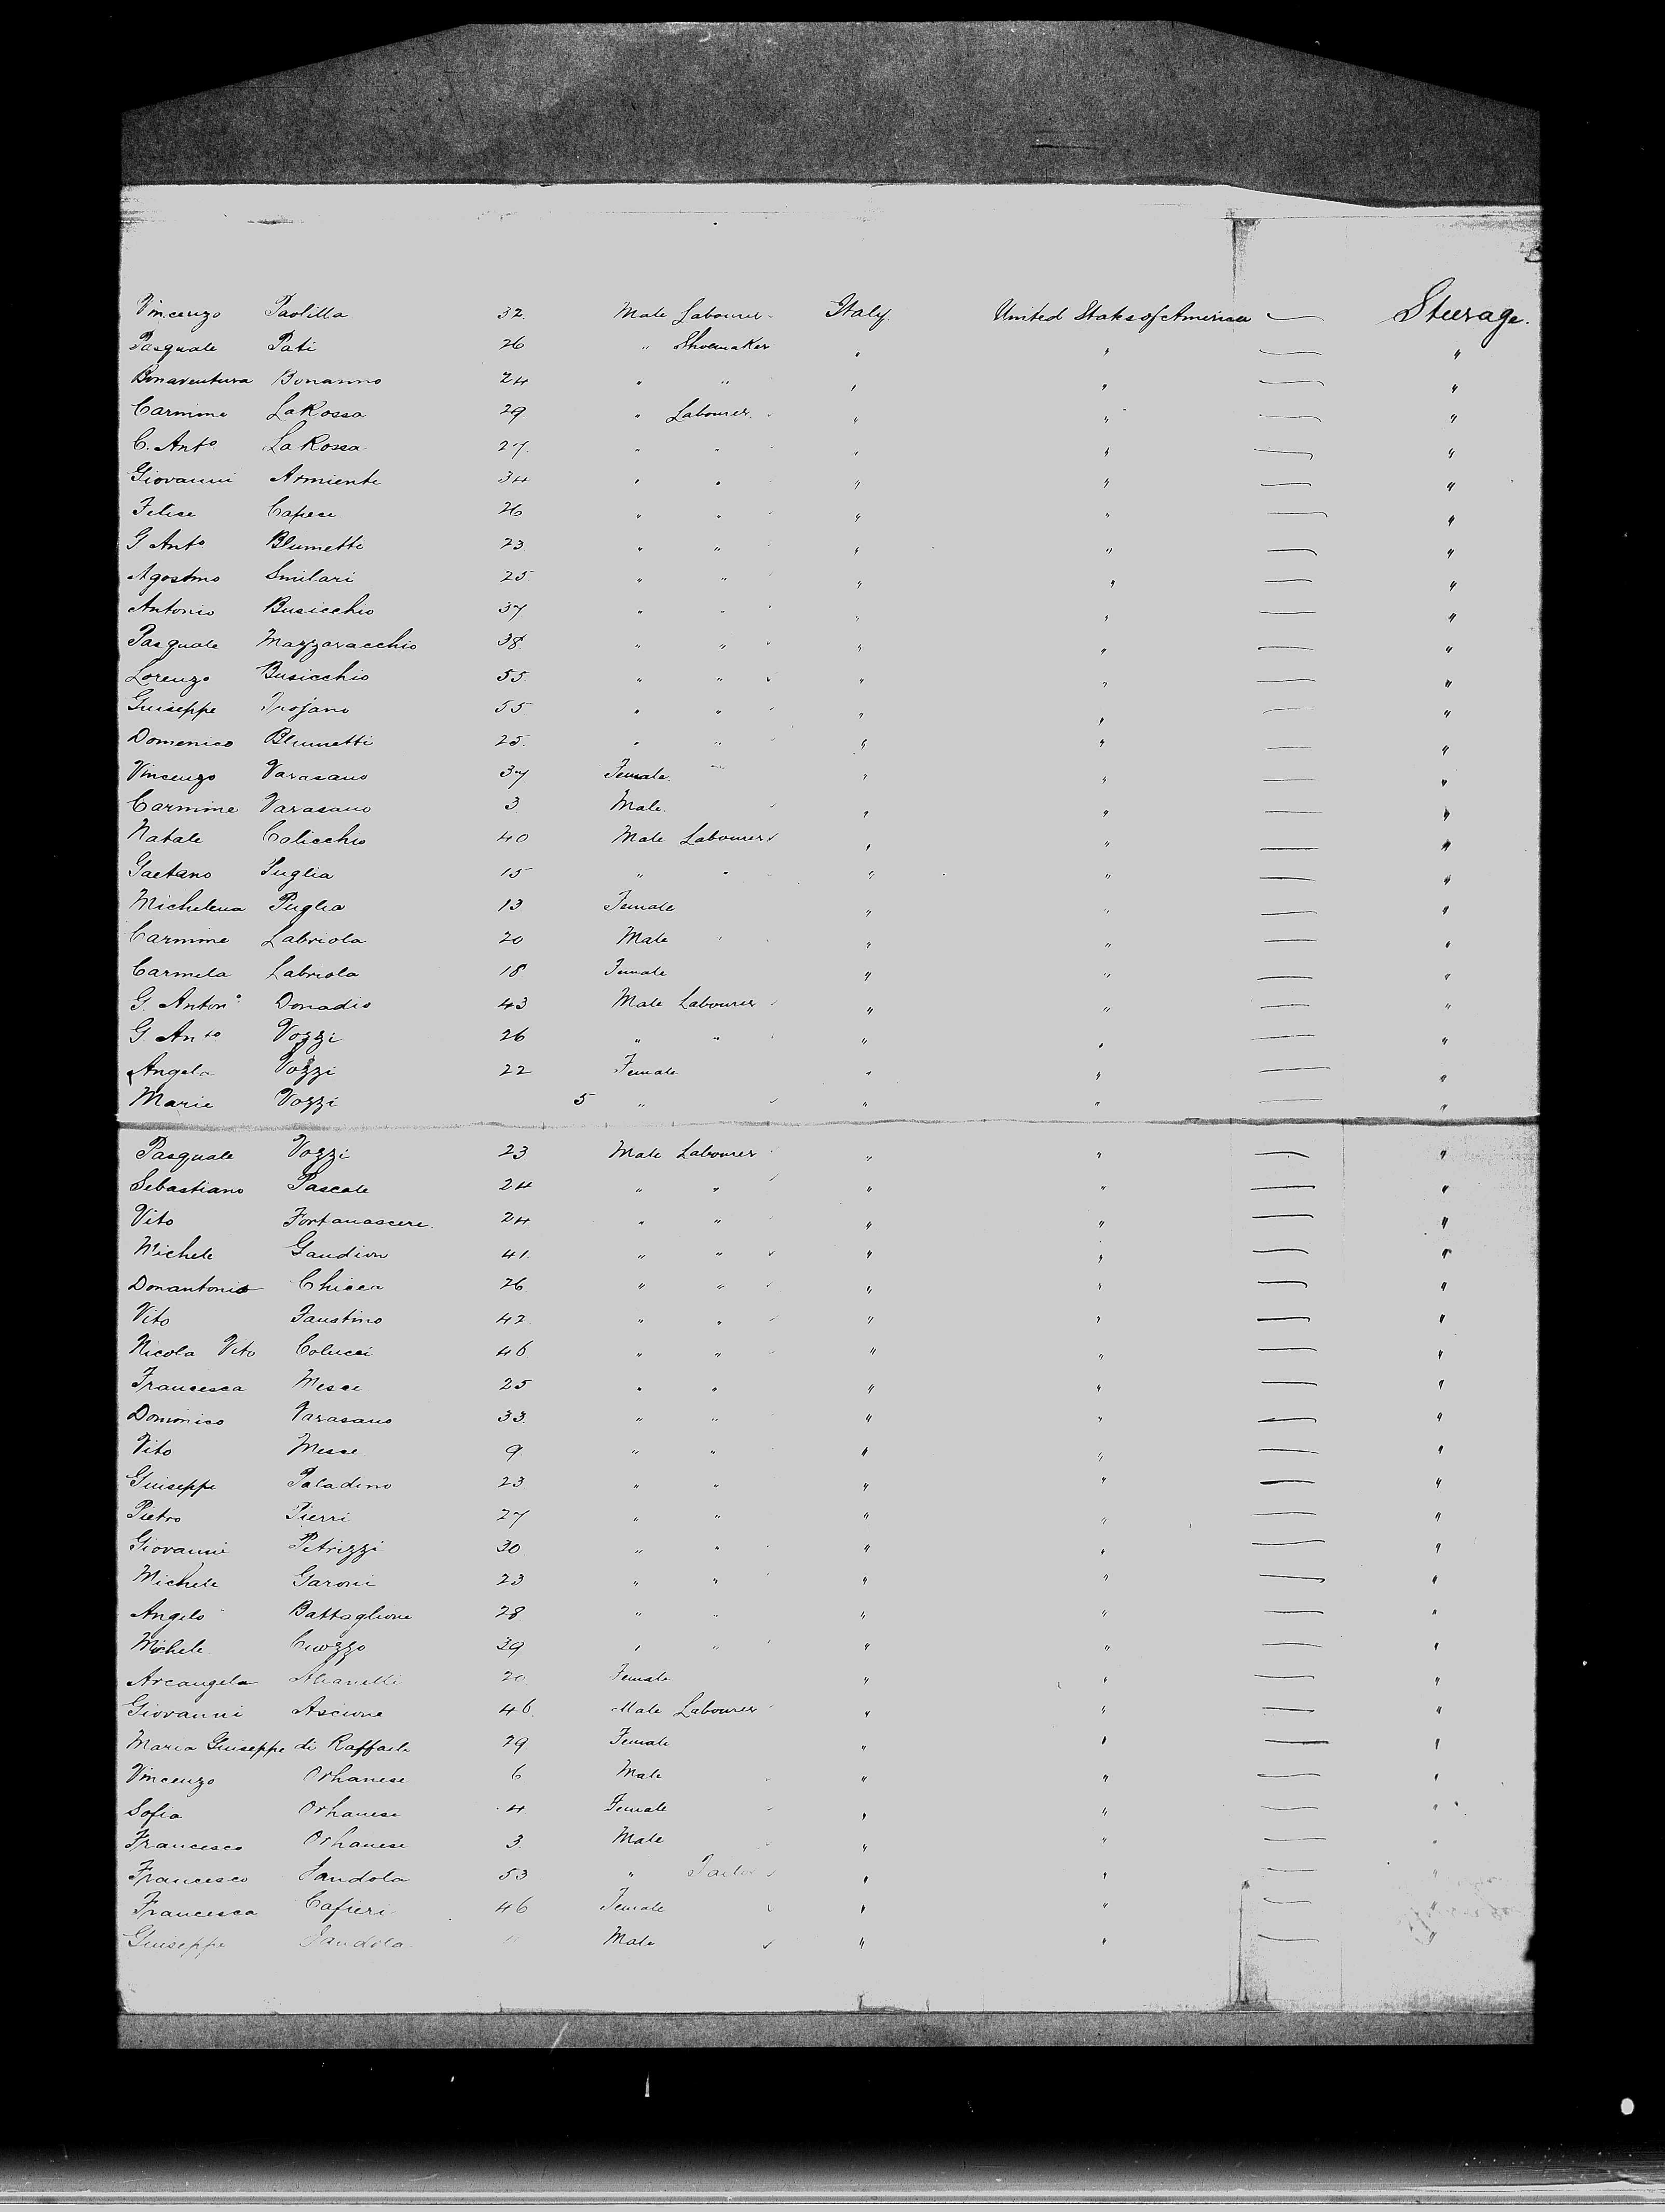 Vincenzo Paolilla 32. Male Labourer Italy. United States of America — Steerage.
Pasquale Pati 26 " Shoemaker " " — "
Bonaventura Bonanno 24 " " " " — "
Carmine LaRossa 29 " Labourer " " — "
C. Anto LaRossa 27. " " " " — "
Giovanni Armiente 34 " " " " — "
Felice Capece 26 " " " " — "
G Anto Blumetti 23 " " " " — "
Agostino Smilari 25. " " " " — "
Antonio Busicchio 37 " " " " — "
Pasquale Mazzaracchio 38. " " " " — "
Lorenzo Busicchio 55 " " " " — "
Guiseppe Trojano 55 " " " " — "
Domenico Blumetti 25. " " " " — "
Vincenzo Varasano 37 Female " " " — "
Carmine Varasano 3 Male. " " — "
Natale Colicchio 40 Male Labourer " " — "
Gaetano Puglia 15 " " " " — "
Michelena Puglia 13 Female " " — "
Carmine Labriola 20 Male " " — "
Carmela Labriola 18 Female " " — "
G. Anton° Donadio 43 Male Labourer " " — "
G. Anto Vozzi 26 " " " " — "
Angela Vozzi 22 Female " " — "
Marie Vozzi 5 " " " — "
Pasquale Vozzi 23 Male Labourer " " — "
Sebastiano Pascale 24 " " " " — "
Vito Fortanascere. 24 " " " " — "
Michele Gaudion 41. " " " " — "
Donantonio Chicca 26 " " " " — "
Vito Faustino 42 " " " " — "
Nicola Vito Colucci 46 " " " " — "
Francesca Mesce 25 " " " " — "
Dominico Varasano 33. " " " " — "
Vito Mesce 9. " " " " — "
Guiseppe Paladino 23 " " " " — "
Pietro Pierri 27 " " " " — "
Giovanni Petrizzi 30 " " " " — "
Michele Garoni 23 " " " " — "
Angelo Battaglione 28 " " " " — "
Michele Cuozzo 39 " " " " — "
Arcangela 20 Female " " — "
Giovanni Ascione 46. Male Labourer " " — "
Maria Guiseppe di Raffaele 29 Female " " — "
Vincenzo Orhanese 6 Male " " — "
Sofia Orhanese 4 Female " " — "
Francesco Orhanese 3. Male " " — "
Francesco Jandola 53 " Tailor " " — "
Francesca Cafieri 46 Female " " — "
Guiseppe Jandola Male " " — "